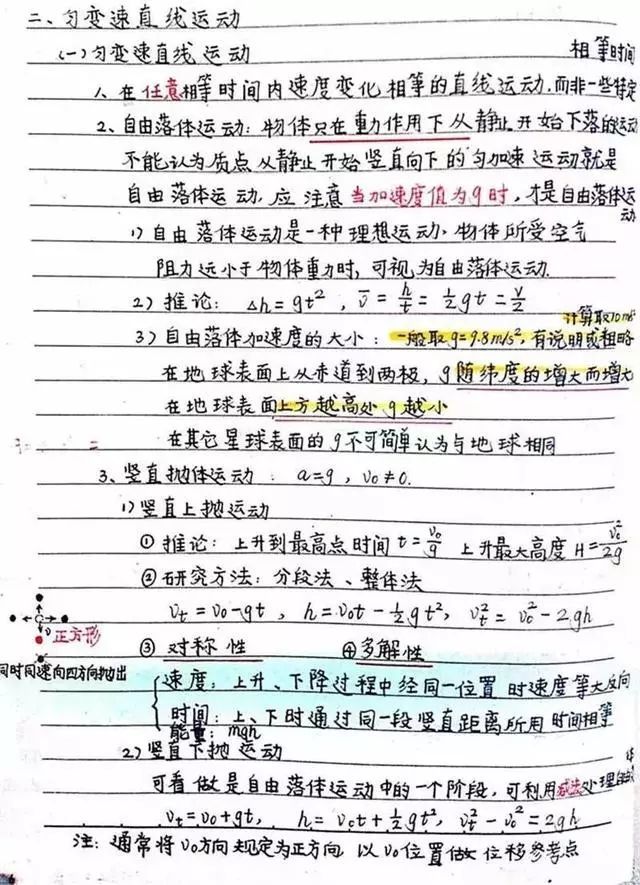 二、匀变速直线运动
(一)匀变速直线运动
相等时间
1、在任意相等时间内速度变化相等的直线运动.而非一些特定
2、自由落体运动:物体只在重力作用下从静止开始下落的运动
不能认为质点从静止开始竖直向下的匀加速运动就是
自由落体运动.应注意当加速度值为g时,才是自由落体运动
1)自由落体运动是一种理想运动.物体所受空气
阻力远小于物体重力时,可视为自由落体运动.
2)推论:Δh=gt²,v̄=h/t=½gt=v/2
计算取10m/s²
3)自由落体加速度的大小:一般取g=9.8m/s²,有说明或粗略
在地球表面上从赤道到两极,g随纬度的增大而增大
在地球表面上方越高处g越小
在其它星球表面的g不可简单认为与地球相同
3、竖直抛体运动:a=g,v₀≠0.
1)竖直上抛运动
①推论:上升到最高点时间t=v₀/g 上升最大高度H=v₀²/2g
②研究方法:分段法、整体法
vt=v₀-gt,h=v₀t-½gt²,vt²=v₀²-2gh
正方形
③对称性 ④多解性
同时同速向四方向抛出
速度:上升、下降过程中经同一位置时速度等大反向
时间:上、下时通过同一段竖直距离所用时间相等
能量:mgh
2)竖直下抛运动
可看做是自由落体运动中的一个阶段,可利用减法处理
vt=v₀+gt,h=v₀t+½gt²,vt²-v₀²=2gh
注:通常将v₀方向规定为正方向,以v₀位置做位移参考点